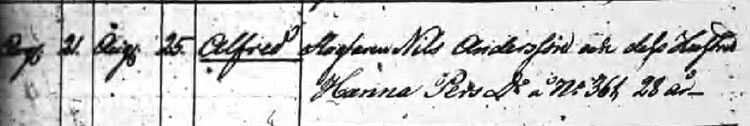 Aug. 21. Aug. 25. Alfred Nils Andersson och dess Hustru
Hanna Pers Dr å No 361, 28 år